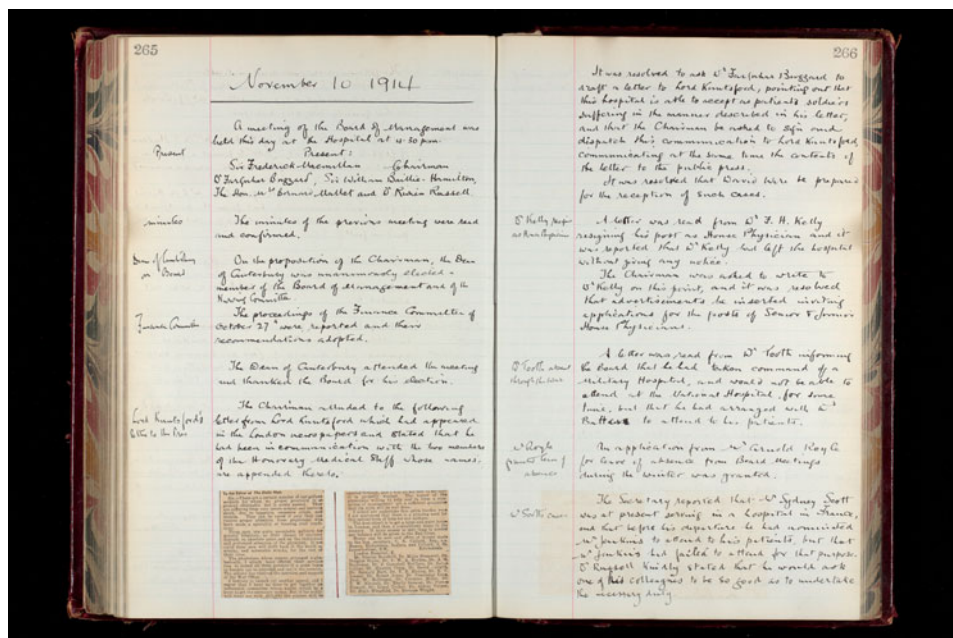 265
November 10 1914
A meeting of the Board of Management was
held this day at the Hospital at 4.30 p.m.
Present
Present:
Sir Frederick Macmillan Chairman
Dr Farquhar Buzzard, Sir William Baillie-Hamilton,
The Hon. Mrs Bernard Mallet and Dr Risien Russell
minutes
The minutes of the previous meeting were read
and confirmed.
Dean of Canterbury
on Board
On the proposition of the Chairman, the Dean
of Canterbury was unanimously elected a
member of the Board of Management and of the
Nursing Committee.
Finance Committee
The proceedings of the Finance Committee of
October 27th were reported and their
recommendations adopted.
The Dean of Canterbury attended the meeting
and thanked the Board for his election.
Lord Knutsford's
letter to the Press
The Chairman alluded to the following
letter from Lord Knutsford which had appeared
in the London newspapers and stated that he
had been in communication with the two members
of the Honorary Medical Staff whose names
are appended thereto.
266
It was resolved to ask Dr Farquhar Buzzard to
draft a letter to Lord Knutsford, pointing out that
this hospital is able to accept as patients soldiers
suffering in the manner described in his letter,
and that the Chairman be asked to sign and
dispatch this communication to Lord Knutsford,
communicating at the same time the contents of
the letter to the public press.
It was resolved that David Wire be prepared
for the reception of such cases.
Dr Kelly resigns
as House Physician
A letter was read from Dr F. H. Kelly
resigning his post as House Physician and it
was reported that Dr Kelly had left the hospital
without giving any notice.
The Chairman was asked to write to
Dr Kelly on this point, and it was resolved
that advertisements be inserted inviting
applications for the posts of Senior & Junior
House Physicians.
Dr Tooth absent
through the War
A letter was read from Dr Tooth informing
the Board that he had taken command of a
Military Hospital, and would not be able to
attend at the National Hospital for some
time, but that he had arranged with Dr
Batten to attend to his patients.
Mr Royle
granted leave of
absence
An application from Mr Arnold Royle
for leave of absence from Board Meetings
during the winter was granted.
Mr Scott's
The Secretary reported that Mr Sydney Scott
was at present serving in a hospital in France,
and that before his departure he had nominated
Mr Jenkins to attend to his patients, but that
Mr Jenkins had failed to attend for that purpose.
Dr kindly stated that he would ask
one of his colleagues to be so good as to undertake
the necessary duty.